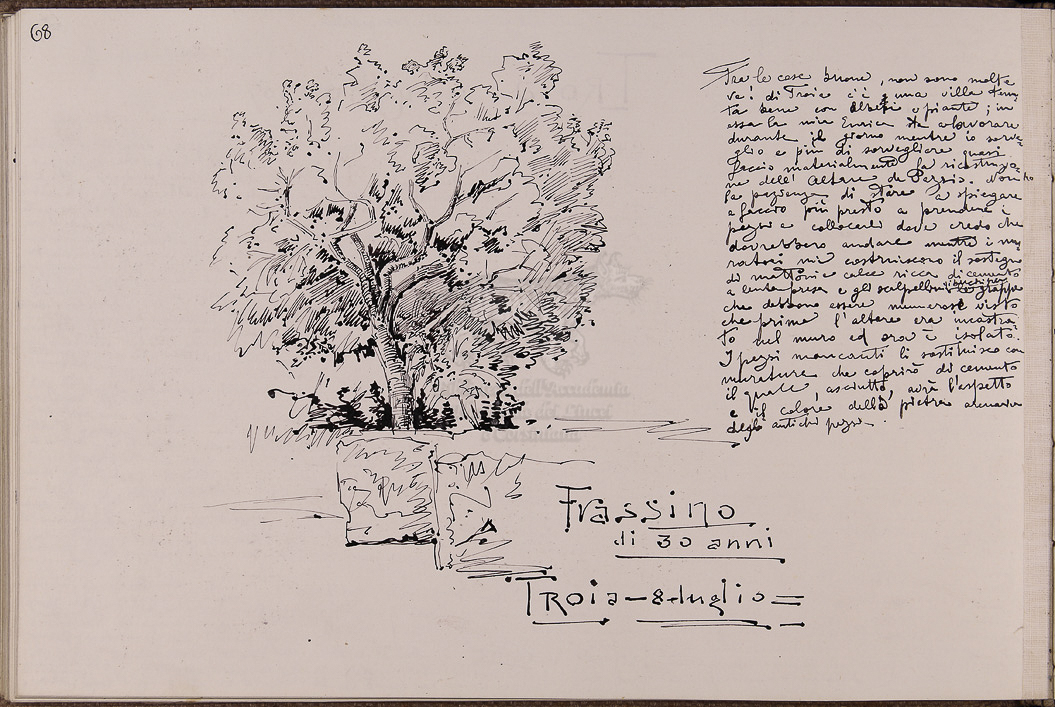 68
Fra le cose buone, non sono molte
ve! di Troia c'è una villa tenu
ta bene con alberi e piante; in
essa la mia Enrica sta a lavorare
durante il giorno mentre io sorve
glio e più di sorvegliare quasi
faccio materialmente la ricostruzio
ne dell'Altare di Pergio. Non ho
la pazienza di stare a spiegare
e faccio più presto a prendere i
pezzi e collocarli dove credo che
dovrebbero andare mentre i mu
ratori mi costruiscono il sostegno
di mattoni e calce ricca di cemento
a lenta presa e gli scalpellini le grappe
che debbono essere numerose visto
che prima l'altare era incastra
to nel muro ed ora è isolato.
I pezzi mancanti li sostituisco con
murature che coprirò di cemento
il quale, asciutto, avrà l'aspetto
e il colore della pietra arenaria
degli antichi pezzi.
Frassino
di 30 anni
Troia - 8 - luglio =